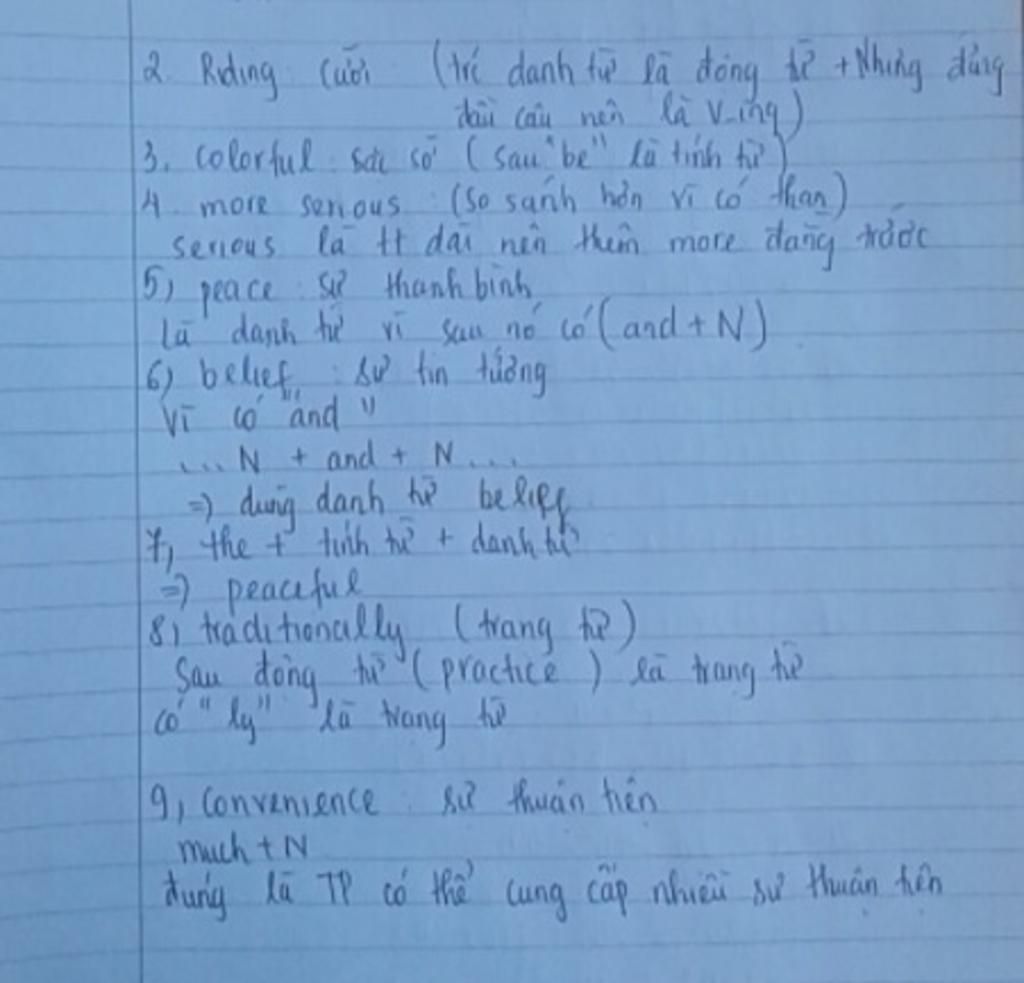 2. Riding: cưỡi (trc danh từ là động từ + Nhưng đứng
đầu câu nên là V-ing)
3. colorful: sặc sỡ (sau "be" là tính từ)
4. more serious: (so sánh hơn vì có than)
serious là tt dài nên thêm more đằng trước
5) peace: sự thanh bình
là danh từ vì sau nó có (and + N)
6) belief: sự tin tưởng
vì có "and"
... N + and + N ...
=) dùng danh từ belief
7, the + tính từ + danh từ
=) peaceful
8) traditionally (trạng từ)
Sau động từ (practice) là trạng từ
có "ly" là trạng từ
9, Convenience: sự thuận tiện
much + N
đúng là TP có thể cung cấp nhiều sự thuận tiện